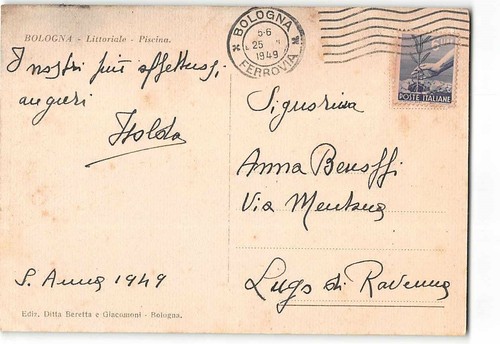 BOLOGNA - Littoriale - Piscina.
I nostri più affettuosi
auguri
Isolda
S. Anna 1949
Ediz. Ditta Beretta e Giacomoni - Bologna.
BOLOGNA
5-6
25
1949
FERROVIA
POSTE ITALIANE
Signorina
Anna
Via Mentana
Lugo di Ravenna